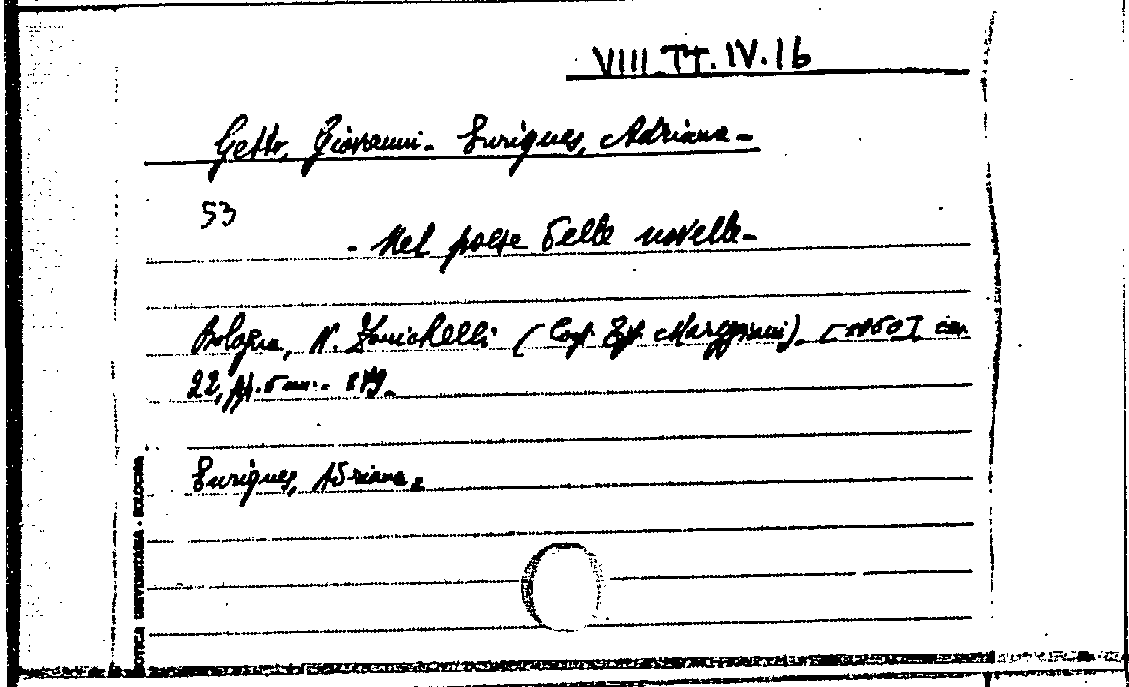 VIII.TT.IV.16
Getto, Giovanni - Enriques, Adriana -
53
- Nel paese delle novelle -
Bologna, N. Zanichelli (Coop. Tip. Mareggiani). [1960] cm.
22, pp. 879.
Enriques, Adriana.
UNIVERSITARIA - BOLOGNA